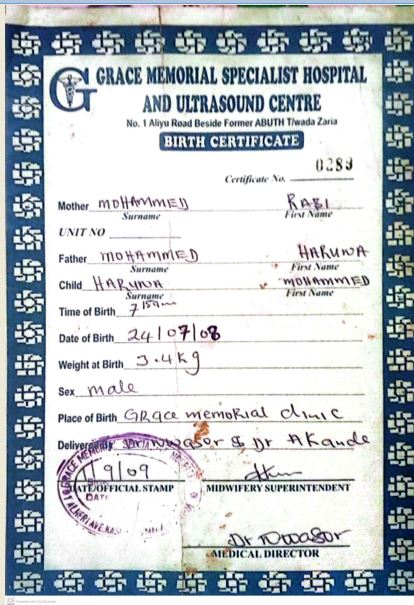 GRACE MEMORIAL SPECIALIST HOSPITAL
AND ULTRASOUND CENTRE
No. 1 Aliyu Road Beside Former ABUTH T/wada Zaria
BIRTH CERTIFICATE
0289
Certificate No.
Mother MOHAMMED RABI
Surname First Name
UNIT NO
Father MOHAMMED HARUNA
Surname First Name
Child HARUNA MOHAMMED
Surname First Name
Time of Birth
Date of Birth 24/07/08
Weight at Birth 3.4kg
Sex male
Place of Birth GRace memorial clinic
Delivered By Dr Nwasor & Dr Akande
1/9/09
DATE/OFFICIAL STAMP MIDWIFERY SUPERINTENDENT
DATE
Dr Nwasor
MEDICAL DIRECTOR